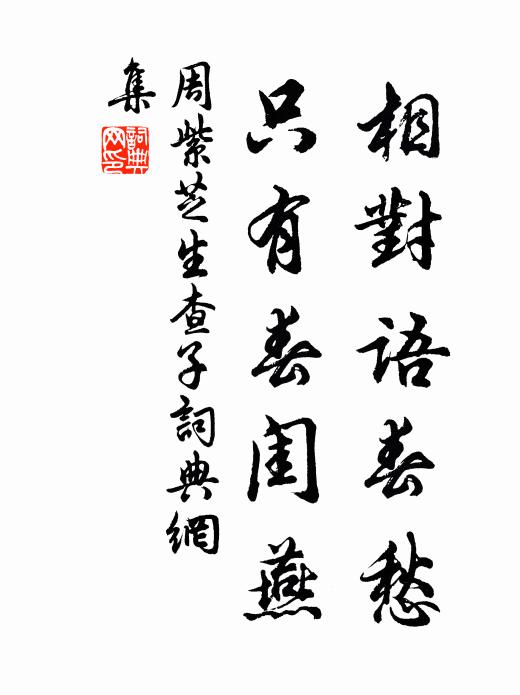 相對語春愁
只有春闺燕
周紫芝生查子詞典網
集
詞典网印